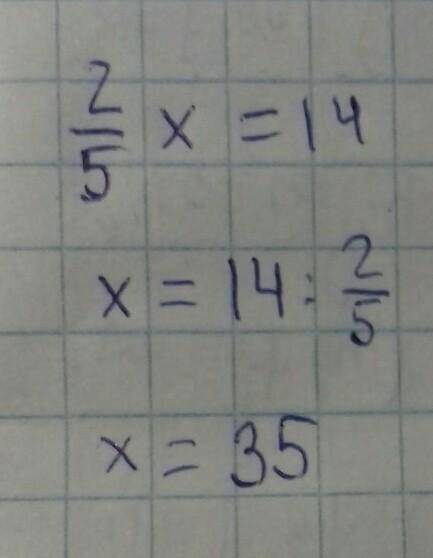 2/5 x = 14
x = 14 : 2/5
x = 35